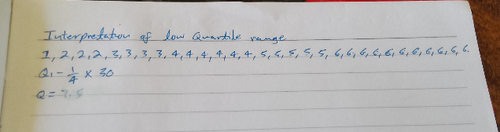 Interpretation of low Quartile range
1, 2, 2, 2, 3, 3, 3, 3, 4, 4, 4, 4, 4, 4, 5, 5, 5, 5, 5, 6, 6, 6, 6, 6, 6, 6, 6, 6, 6, 6.
Q₁ - 1/4 × 30
Q = 7.5